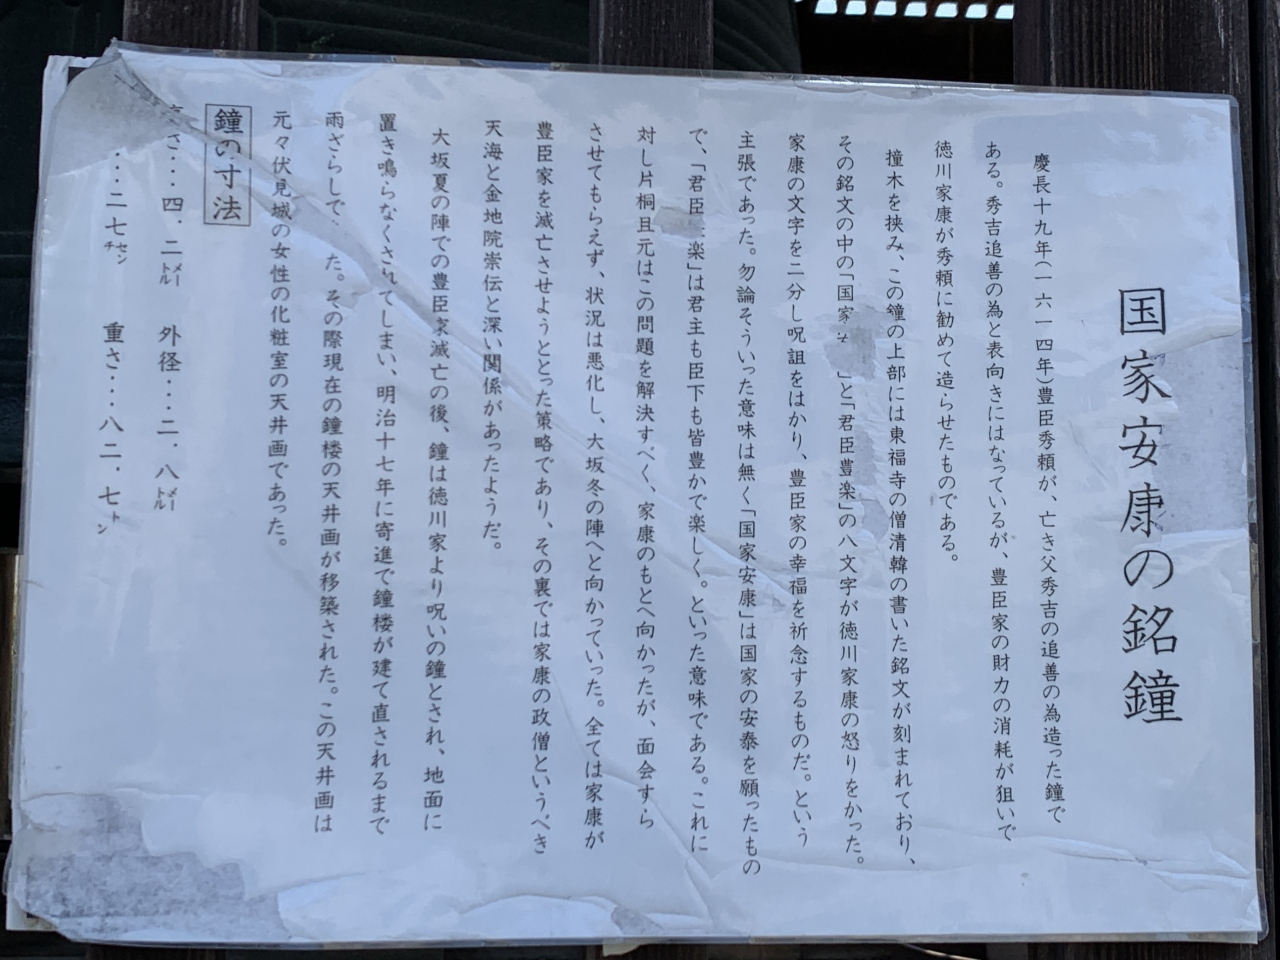 国家安康の銘鐘
慶長十九年(一六一四年)豊臣秀頼が、亡き父秀吉の追善の為造った鐘で
ある。秀吉追善の為と表向きにはなっているが、豊臣家の財力の消耗が狙いで
徳川家康が秀頼に勧めて造らせたものである。
撞木を挟み、この鐘の上部には東福寺の僧清韓の書いた銘文が刻まれており、
その銘文の中の「国家 」と「君臣豊楽」の八文字が徳川家康の怒りをかった。
家康の文字を二分し呪詛をはかり、豊臣家の幸福を祈念するものだ。という
主張であった。勿論そういった意味は無く「国家安康」は国家の安泰を願ったもの
で、「君臣 楽」は君主も臣下も皆豊かで楽しく。といった意味である。これに
対し片桐且元はこの問題を解決すべく、家康のもとへ向かったが、面会すら
させてもらえず、状況は悪化し、大坂冬の陣へと向かっていった。全ては家康が
豊臣家を滅亡させせようととった策略であり、その裏では家康の政僧というべき
天海と金地院崇伝と深い関係があったようだ。
大坂夏の陣での豊臣家滅亡の後、鐘は徳川家より呪いの鐘とされ、地面に
置き鳴らなくされてしまい、明治十七年に寄進で鐘楼が建て直されるまで
雨ざらしで た。その際現在の鐘楼の天井画が移築された。この天井画は
元々伏見城の女性の化粧室の天井画であった。
鐘の寸法
高さ・・・四．二メートル 外径・・・・二．八メートル
・・・二七センチ 重さ・・・・八二．七トン